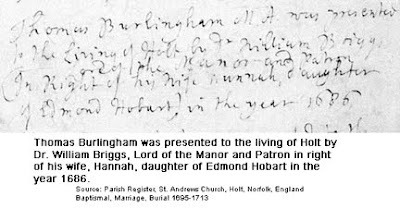 Thomas Burlingham M A. was presented
to the Living of Holt by Dr William Briggs
Ld of the Manor and Patron
in Right of his Wife Hannah daughter
of Edmond Hobart in the year 1686
Thomas Burlingham was presented to the living of Holt by
Dr. William Briggs, Lord of the Manor and Patron in right
of his wife, Hannah, daughter of Edmond Hobart in the
year 1686.
Source: Parish Register, St. Andrews Church, Holt, Norfolk, England
Baptismal, Marriage, Burial 1695-1713